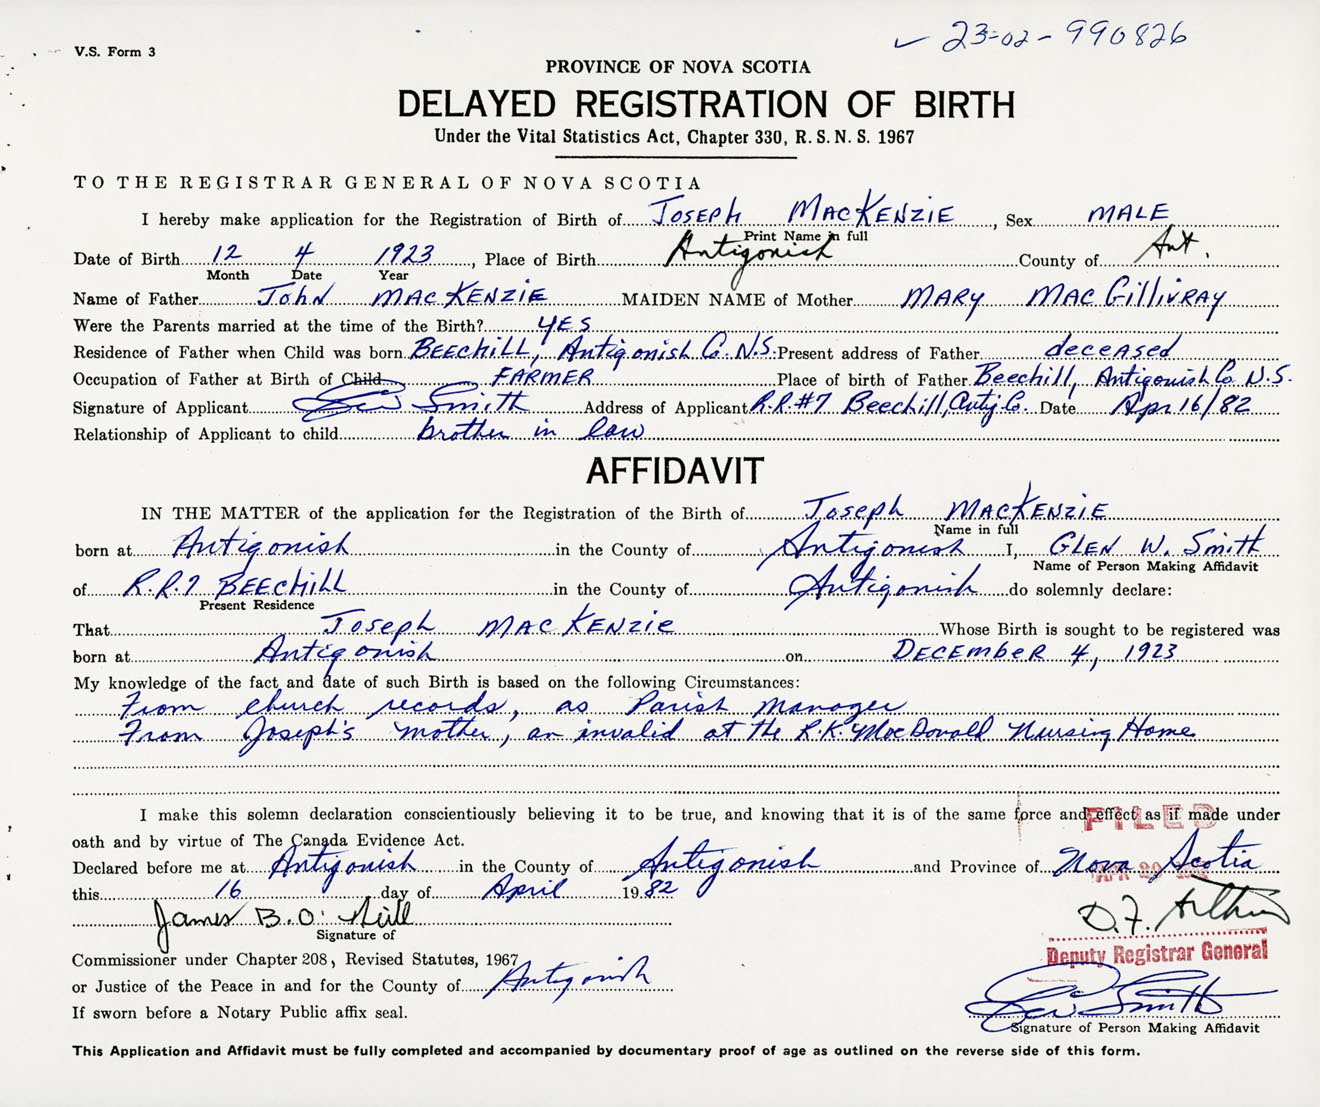 ✓ 23-02-990826
V.S. Form 3
PROVINCE OF NOVA SCOTIA
DELAYED REGISTRATION OF BIRTH
Under the Vital Statistics Act, Chapter 330, R. S. N. S. 1967
TO THE REGISTRAR GENERAL OF NOVA SCOTIA
I hereby make application for the Registration of Birth of JOSEPH MACKENZIE, Sex MALE
Print Name in full
Date of Birth 12 4 1923, Place of Birth Antigonish County of Ant.
Month Date Year
Name of Father JOHN MACKENZIE MAIDEN NAME of Mother MARY MACGILLIVRAY
Were the Parents married at the time of the Birth? YES
Residence of Father when Child was born BEECHILL, Antigonish Co. N.S. Present address of Father deceased
Occupation of Father at Birth of Child FARMER Place of birth of Father Beechill, Antigonish Co N.S.
Signature of Applicant Smith Address of Applicant R.R.#7 Beechill, Antig Co. Date Apr 16/82
Relationship of Applicant to child brother in law
AFFIDAVIT
IN THE MATTER of the application for the Registration of the Birth of Joseph MACKENZIE
Name in full
born at Antigonish in the County of Antigonish I, GLEN W. Smith
Name of Person Making Affidavit
of R.R.7 BEECHILL in the County of Antigonish do solemnly declare:
Present Residence
That Joseph MACKENZIE Whose Birth is sought to be registered was
born at Antigonish on DECEMBER 4, 1923
My knowledge of the fact and date of such Birth is based on the following Circumstances:
From church records, as Parish Manager
From Joseph's mother, an invalid at the R.K. MacDonald Nursing Home
I make this solemn declaration conscientiously believing it to be true, and knowing that it is of the same force and effect as if made under
oath and by virtue of The Canada Evidence Act.
FILED
Declared before me at Antigonish in the County of Antigonish and Province of Nova Scotia
APR 20
this 16 day of April 1982
James B. O'Neill
Signature of
D.F. Arthur
Deputy Registrar General
Commissioner under Chapter 208, Revised Statutes, 1967
or Justice of the Peace in and for the County of Antigonish
If sworn before a Notary Public affix seal.
Smith
Signature of Person Making Affidavit
This Application and Affidavit must be fully completed and accompanied by documentary proof of age as outlined on the reverse side of this form.